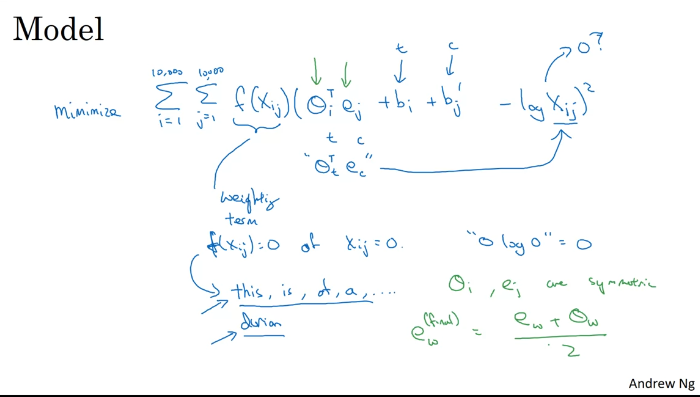 Model
t c 0?
minimize 10,000 ∑ i=1 10,000 ∑ j=1 f(Xij) ( θi^T ej + bi + bj' - log Xij )^2
t c
"θt^T ec"
weighting term
f(Xij)=0 if Xij=0. "0 log 0" = 0
this, is, of, a, .... θi, ej are symmetric
durian ew^(final) = (ew + θw) / 2
Andrew Ng